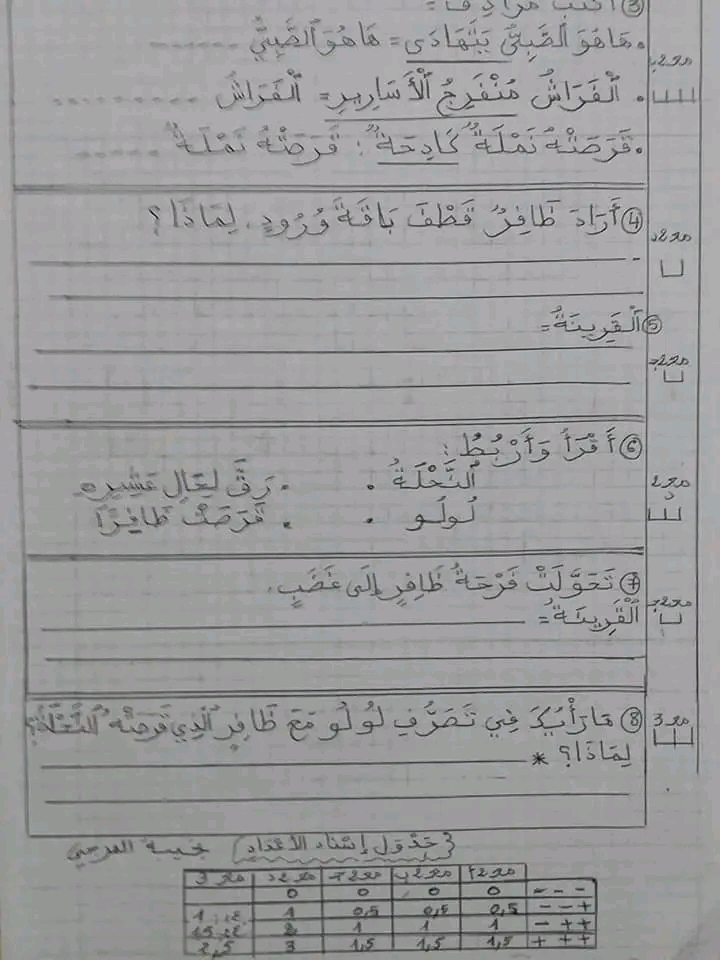 ③ أكتب مرادف:
. هَا هُوَ الصَّبِيُّ يَتَهَادَى = هَا هُوَ الصَّبِيُّ .......
مع2ب
. الْفَرَاشُ مُنْفَرِجُ الْأَسَارِيرِ = الْفَرَاشُ ..........
. قَرَصَتْهُ نَمْلَةٌ كَادِحَةٌ : قَرَصَتْهُ نَمْلَةٌ .....
④ أَرَادَ ظَافِرُ قَطْفَ بَاقَةَ وُرُودٍ. لِمَاذَا؟
مع2د
⑤ الْقَرِينَةُ =
مع2ج
⑥ أَقْرَأُ وَأَرْبُطُ :
النَّحْلَةُ . . رَقَّ لِحَالِ عَشِيرِهِ
مع2
لُولُو . . قَرَصَتْ ظَافِرًا
⑦ تَحَوَّلَتْ فَرْحَةُ ظَافِرٍ إِلَى غَضَبٍ.
مع2ج
الْقَرِينَةُ =
⑧ مَا رَأْيُكَ فِي تَصَرُّفِ لُولُو مَعَ ظَافِرٍ الَّذِي قَرَصَتْهُ النَّحْلَةُ؟
مع3
لِمَاذَا؟ *
{جدول إسناد الأعداد}
مع2أ مع2ب مع2ج مع2د مع3
- - - 0 0 0 0
- - + 0,5 0,5 0,5 1
- + + 1 1 1 2
+ + + 1,5 1,5 1,5 3 2,5